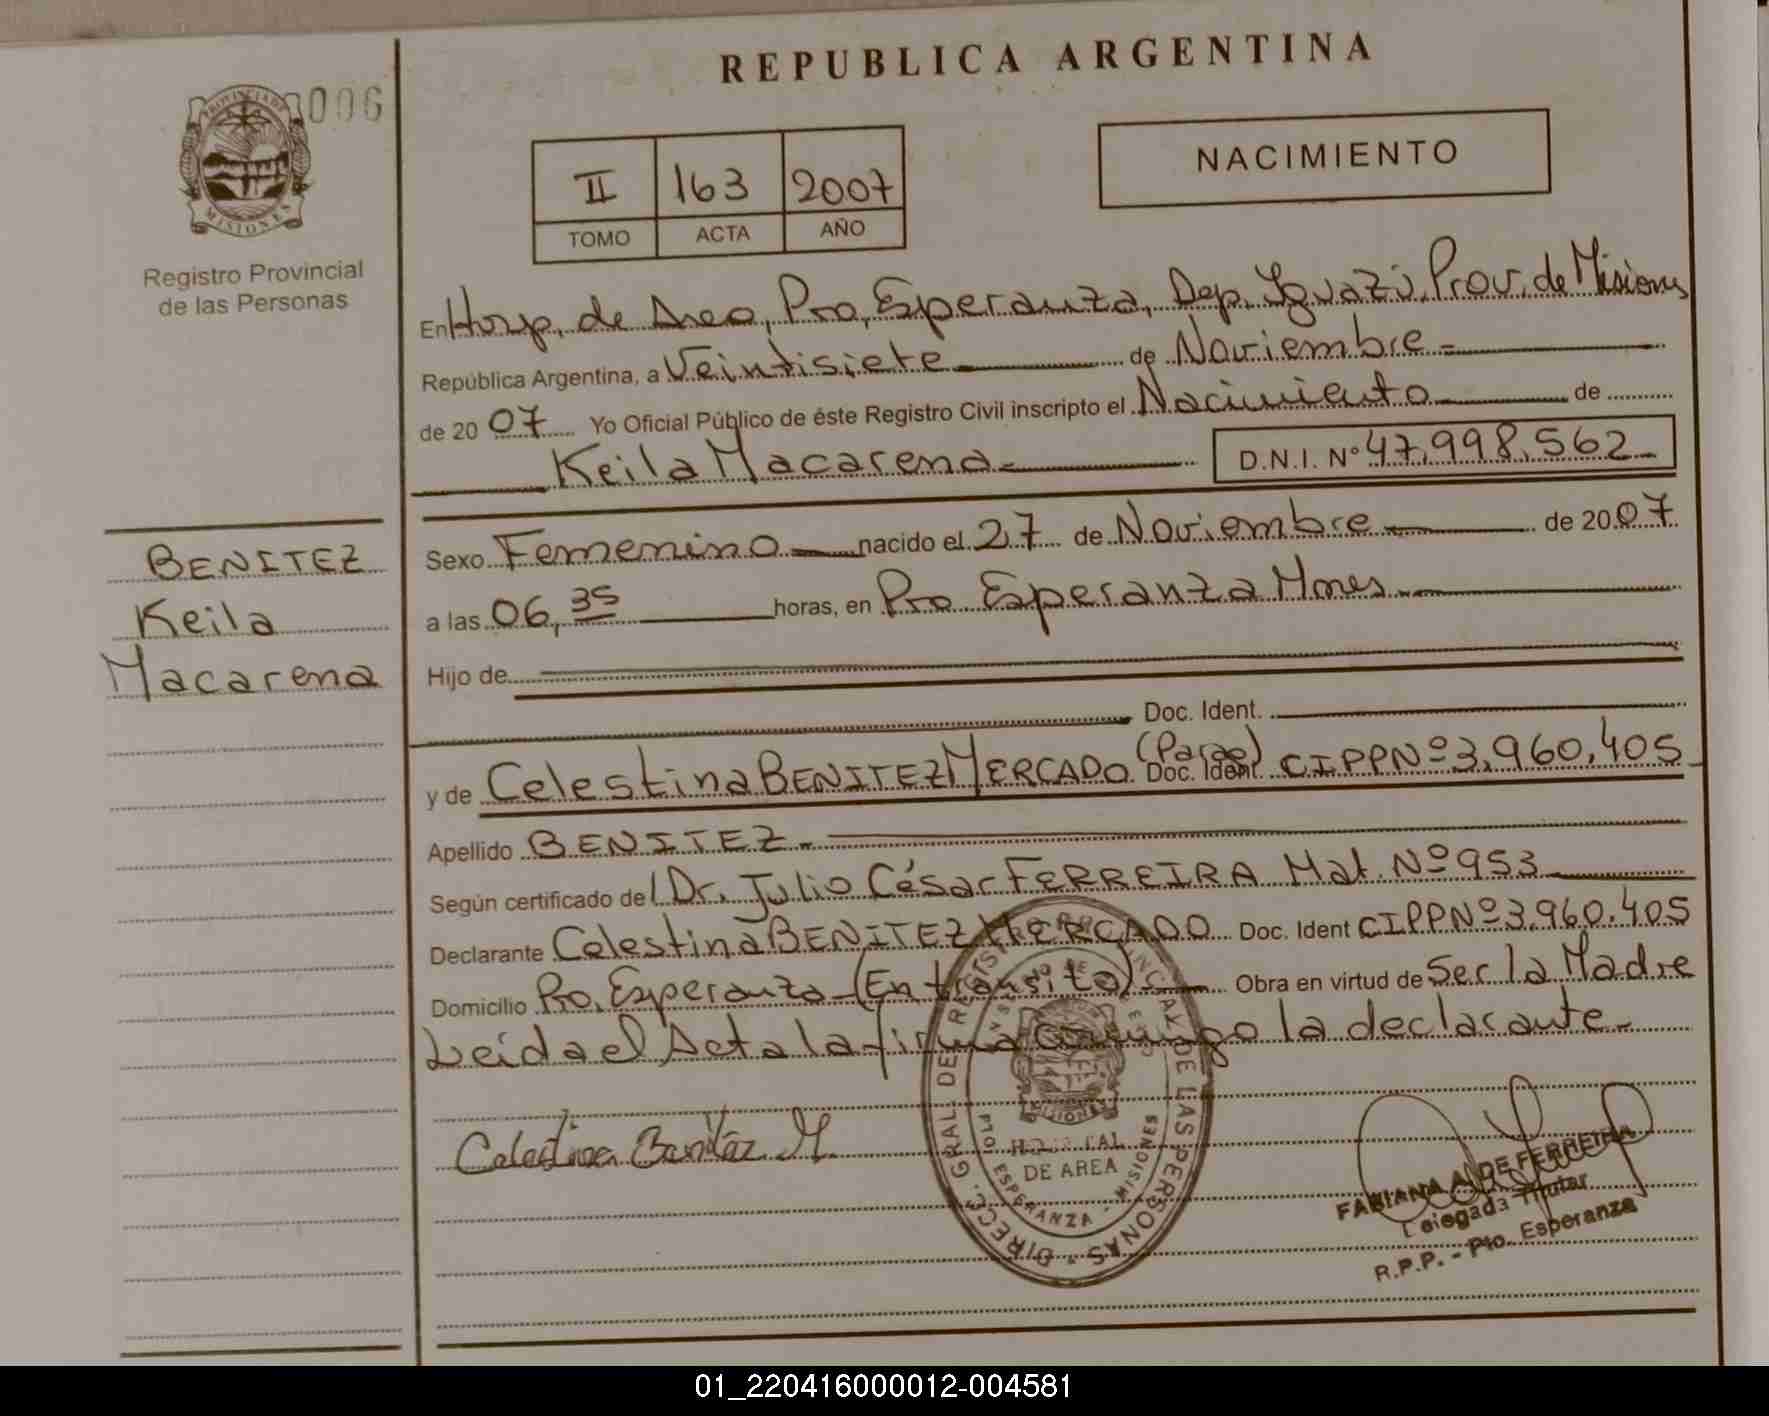 REPUBLICA ARGENTINA
006
PROVINCIA DE
MISIONES
Registro Provincial
de las Personas
II 163 2007
TOMO ACTA AÑO
NACIMIENTO
En Hosp. de Area, Pto, Esperanza, Dep. Iguazú, Prov. de Misiones
República Argentina, a Veintisiete de Noviembre
de 20 07 Yo Oficial Público de éste Registro Civil inscripto el Nacimiento de
Keila Macarena D.N.I. Nº 47.998.562
BENITEZ
Keila
Macarena
Sexo Femenino nacido el 27 de Noviembre de 20 07
a las 06,35 horas, en Pto Esperanza Mnes
Hijo de
Doc. Ident.
y de Celestina BENITEZ MERCADO (Parag) Doc. Ident. CIPPNº 3.960.405
Apellido BENITEZ
Según certificado de Dr. Julio César FERREIRA Mat. Nº 953
Declarante Celestina BENITEZ MERCADO Doc. Ident CIPPNº 3.960.405
Domicilio Pto. Esperanza (En transito) Obra en virtud de Ser la Madre
Leida el Acta la firma conmigo la declarante
Celestina Benitez M.
DIREC. GRAL. DEL REGISTRO PROVINCIAL DE LAS PERSONAS
MISIONES
HOSPITAL
DE AREA
PTO ESPERANZA - MISIONES
FABIANA A. DE FERREIRA
Delegada Titular
R.P.P. - Pto. Esperanza
01_220416000012-004581